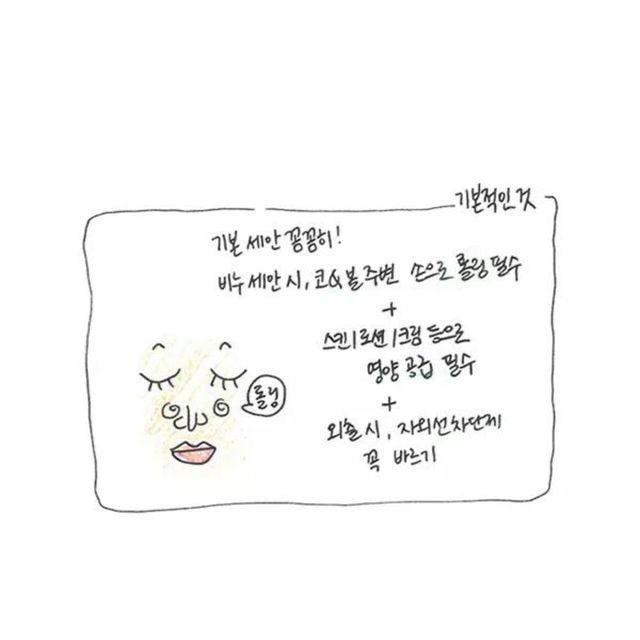 기본적인 것
기본 세안 꼼꼼히!
비누 세안 시, 코&볼 주변 손으로 롤링 필수
+
스킨/로션/크림 등으로
영양 공급 필수
롤링
+
외출 시, 자외선차단제
꼭 바르기